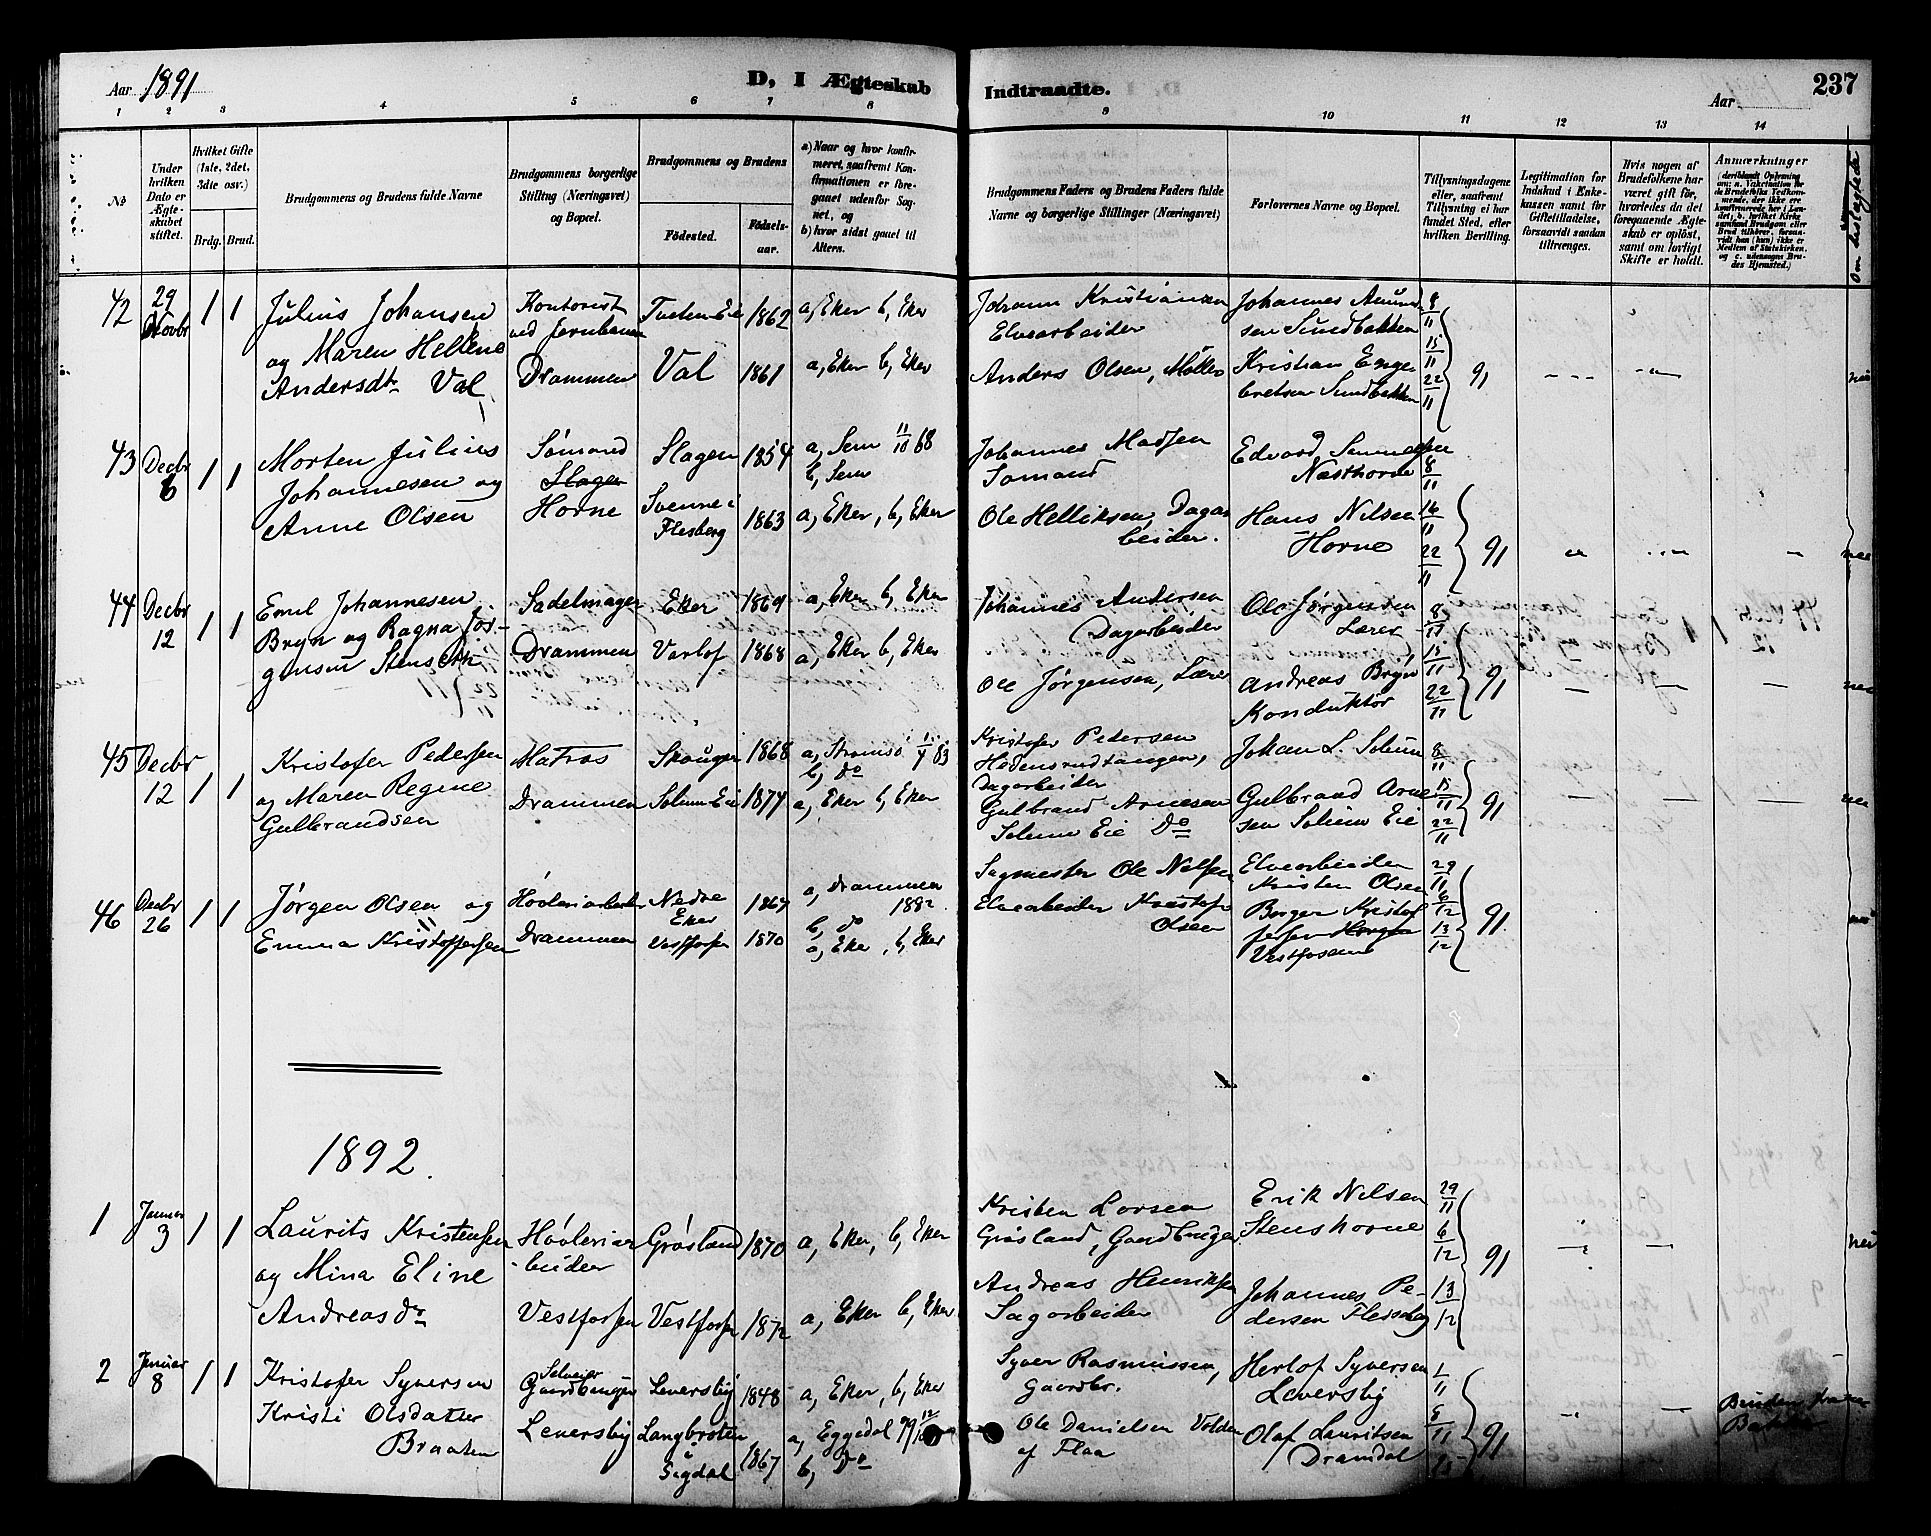 Aar 1891
D, I Ægteskab
Indtraadte.
Aar
237
1 2 3 4 5 6 7 8 9 10 11 12 13 14
No
Under hvilken Dato er Ægteskabet stiftet.
Hvilket Gifte (1ste, 2det, 3die osv.)
Brdg. Brud.
Brudgommens og Brudens fulde Navne
Brudgommens borgerlige Stilling (Næringsvei) og Bopæl.
Brudgommens og Brudens
Fødested.
Fødselsaar.
a) Naar og hvor konfirmeret, saafremt Konfirmationen er foregaaet udenfor Sognet, og
b) hvor sidst gaaet til Alters.
Brudgommens Faders og Brudens Faders fulde Navne og borgerlige Stillinger (Næringsvei)
Forlovernes Navne og Bopæl.
Tillysningsdagene eller, saafremt Tillysning ei har fundet Sted, efter hvilken Bevilling.
Legitimation for Indskud i Enkekassen samt for Giftetilladelse, forsaavidt saadan tiltrænges.
Hvis nogen af Brudefolkene har været gift før, hvorledes da det foregaaende Ægteskab er opløst, samt om lovligt Skifte er holdt.
Anmærkninger
Om beslægtede
42 29 Novbr 1 1 Julius Johansen Kontorist Tveten Eie 1862 a, Eker b, Eker Johann Kristiansen Johannes Amund- 8/11
og Maren Hellene ved Jernbanen Elvearbeider sen Sundbakken 15/11
Andersdtr Val Drammen Val 1861 a, Eker b, Eker Anders Olsen, Møller Kristian Enge- 22/11 91
bretsen Sundbakken
43 Decbr 6 1 1 Morten Julius Sømand Slagen 1854 a, Sem 11/10 68 Johannes Madsen Edvard
Johannesen og Slagen b, Sem Sømand Næsthorne 8/11
Anne Olsen Horne Svenne i Flesberg 1863 a, Eker, b, Eker Ole Helliksen, Dagar- Hans Nilsen 16/11
beider. Horne 22/11 91
44 Decbr 12 1 1 Emil Johannesen Sadelmager Eker 1869 a, Eker b, Eker Johannes Andersen Ole Jørgensen 8/11
Bryn og Ragna Jør- Dagarbeider Lærer 15/11
gensen Drammen Varlof 1868 a, Eker b, Eker Ole Jørgensen, Lærer Andreas Bryn 22/11 91
Konduktør
45 Decbr 12 1 1 Kristofer Pedersen Matros Skouger 1868 a, Strømsø 1/4 83 Kristofer Pedersen Johan L. Solum 8/11
og Maren Regine b, Do Hedensrudtangen,
Gulbrandsen Drammen Solum Eie 1874 a, Eker b, Eker Dagarbeider
Gulbrand Arnesen Gulbrand Arne- 15/11
Solum Eie Do sen Solum Eie 22/11 91
46 Decbr 26 1 1 Jørgen Olsen og Høvleriarbeider Nedre Eker 1867 a, Drammen 1882 Sagmester Ole Nilsen Elvearbeider 29/11
b, do Kristen Olsen 6/12
Emma Kristoffersen Drammen Vestfossen 1870 a, Eker, b, Eker Elvearbeider Kristofer Olsen Borger Kristof- 13/12 91
fersen Horgen
Vestfossen
1892.
1 Januar 3 1 1 Laurits Kristensen Høvleriar- Grøsland 1870 a, Eker, b, Eker Kristen Larsen Erik Nilsen 29/11
og Mina Eline beider Grøsland, Gaardbruger Stenshorne 6/12
Andreasdr Vestfossen Vestfossen 1872 a, Eker b, Eker Andreas Henriksen Johannes Pe- 13/12 91
Sagarbeider dersen Flesseberg nei
2 Januar 8 1 1 Kristofer Syversen Selveier Gaardbruger Leversby 1848 a, Eker, b, Eker Syver Rasmussen, Herlof Syversen 1/11
Gaardbr. Leversby
Kristi Olsdatter Leversby Langbroten i Sigdal 1867 a, Eggedal b, Do Ole Danielsen Volden Olaf Lauritsen 8/11 91
Braaten af Flaa Dramdal 15
Bruden fra